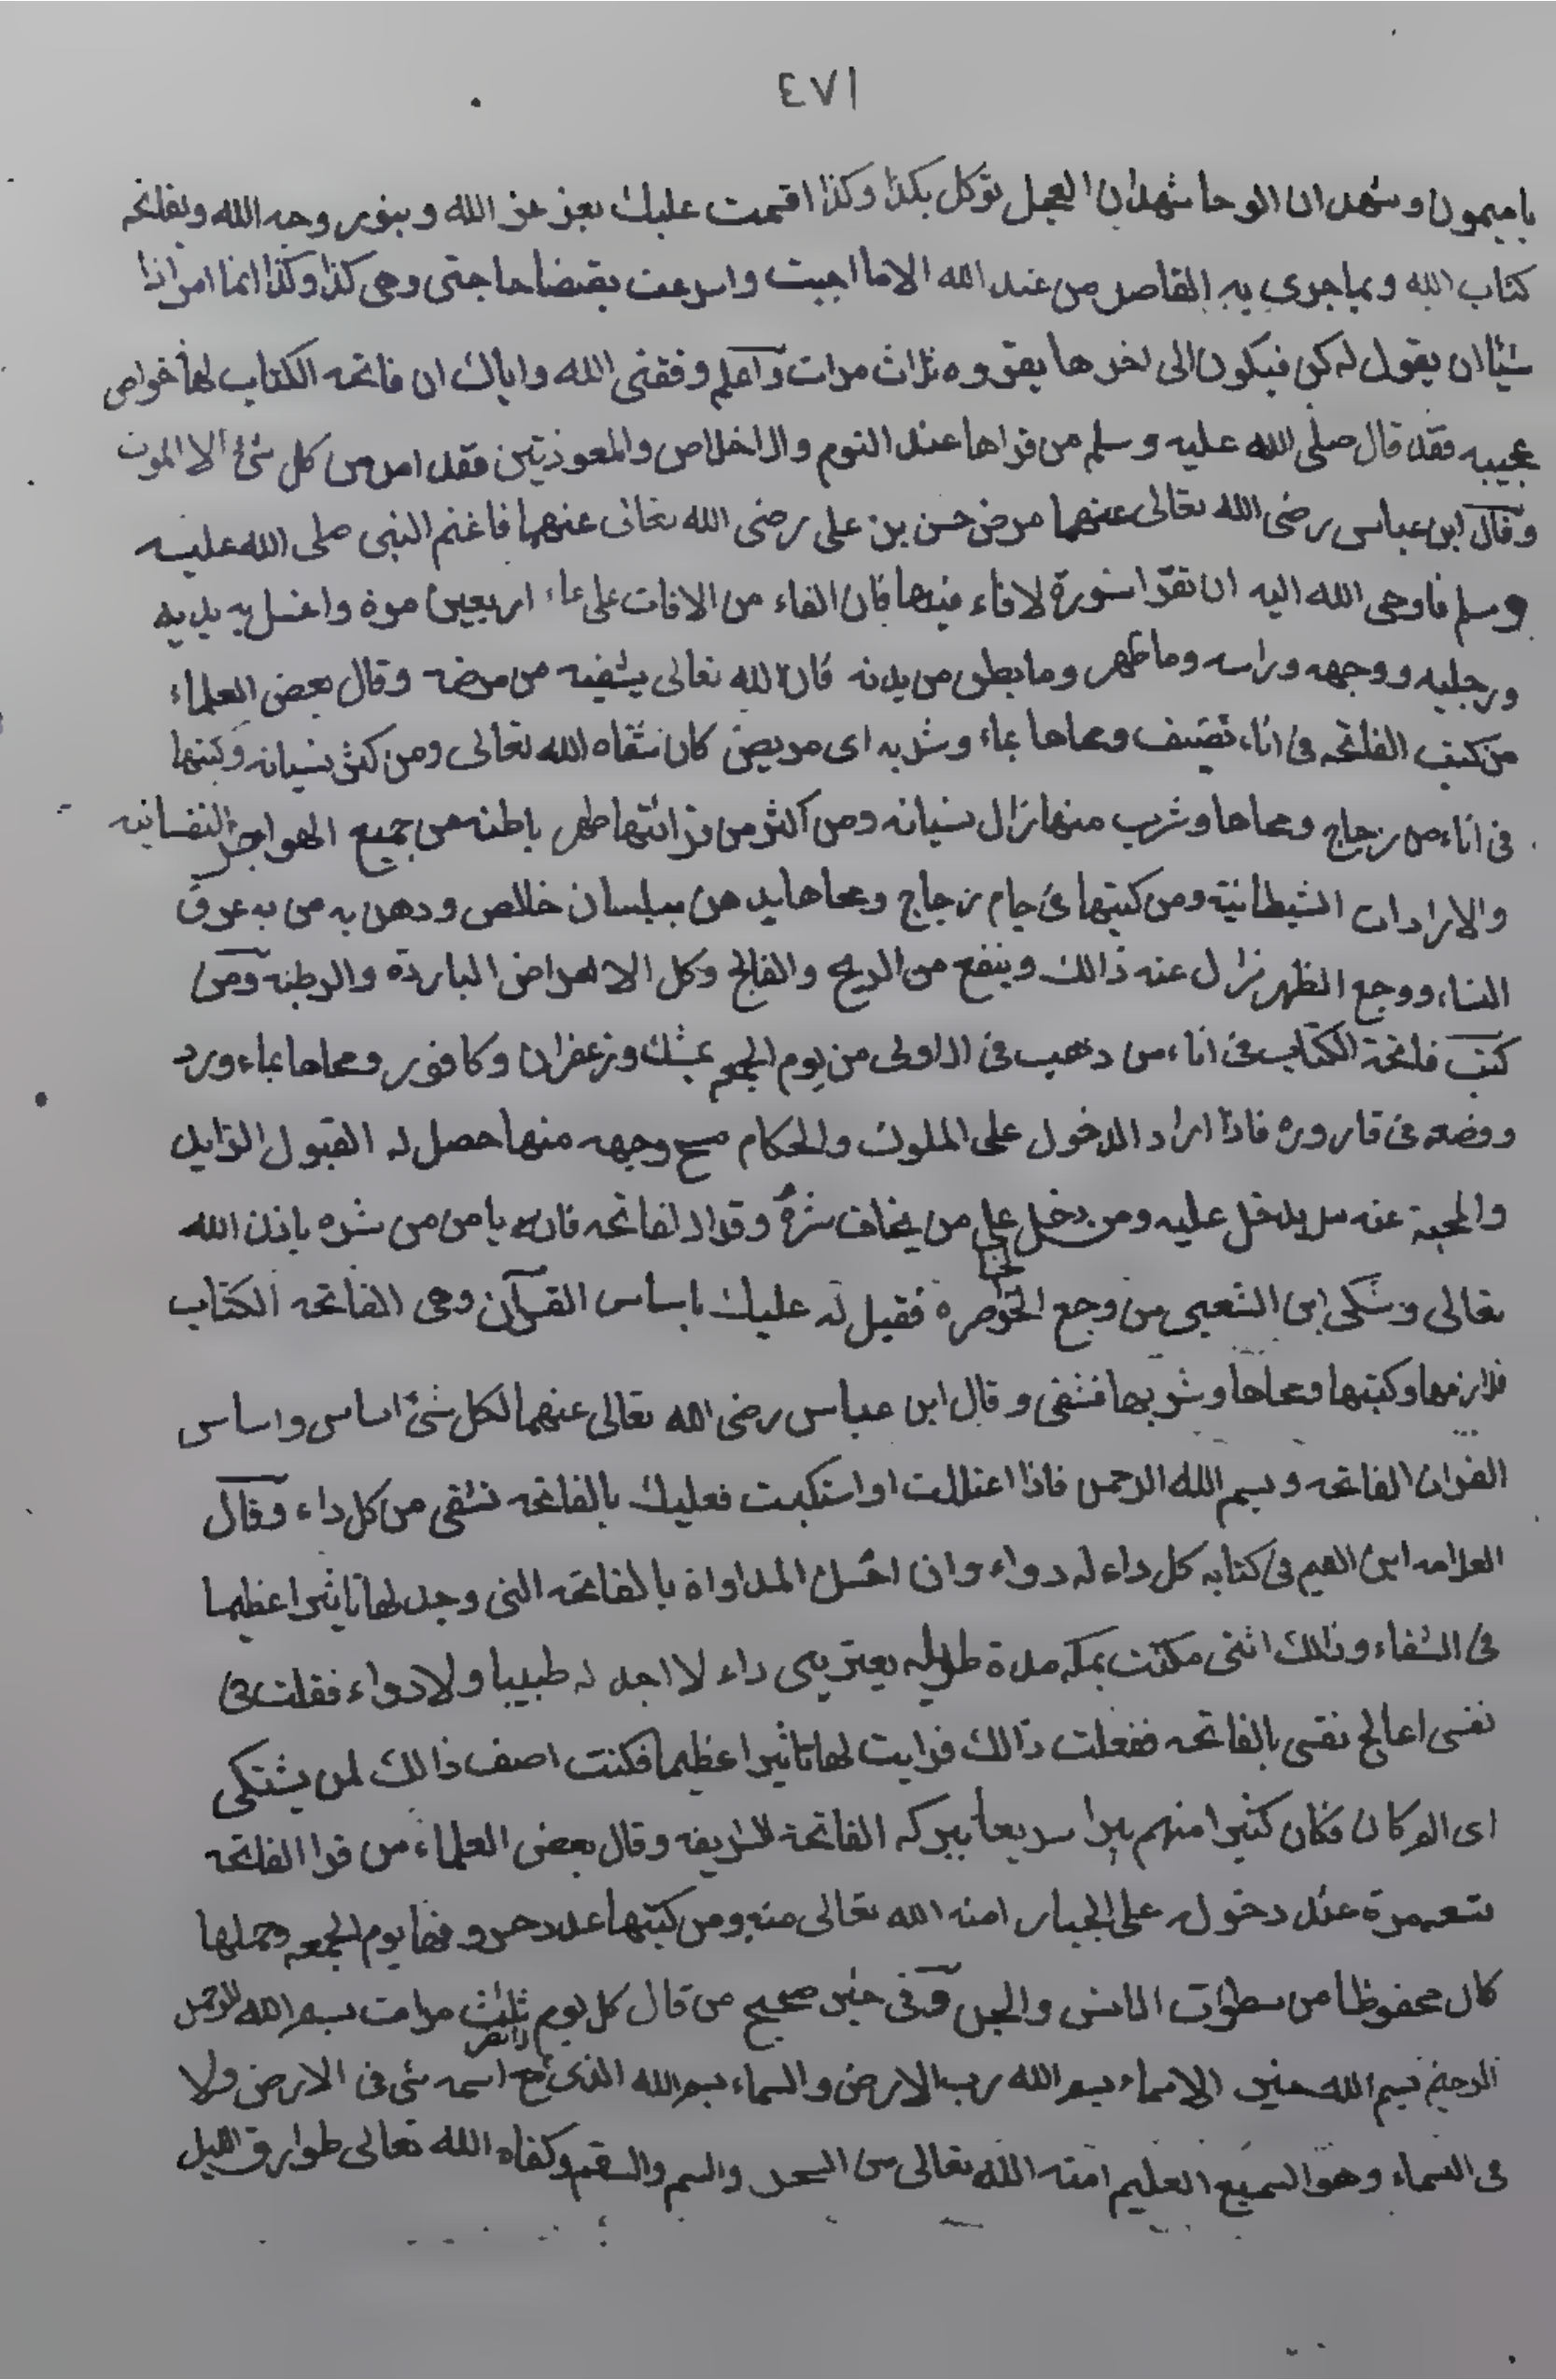 ٤٧١
يا ميمون وشهدان الوحا شهدان العجل توكل بكذا وكذا اقسمت عليك بعز عز الله وبنور وجه الله وبفاتحه
كتاب الله وبما جرى به القلم من عند الله الا ما اجبت واسرعت بقضا حاجتى وهى كذا وكذا انما امر اذا
شيئا ان يقول له كن فيكون الى اخرها يقروه ثلاث مرات واعلم وفقنى الله واياك ان فاتحه الكتاب لها خواص
عجيبه فقد قال صلى الله عليه وسلم من قراها عند النوم والاخلاص والمعوذتين فقد امن من كل شئ الا الموت
وقال ابن عباس رضى الله تعالى عنهما مرض حسن بن على رضى الله تعالى عنهما فاغتم النبى صلى الله عليه
وسلم فاوحى الله اليه ان تقرا سورة لا فاء فيها فان الفاء من الافات على ماء اربعين مرة واغسل به يديه
ورجليه ووجهه وراسه وما ظهر وما بطن من بدنه فان الله تعالى يشفيه من مرضه وقال بعض العلماء
من كتب الفاتحه فى اناء نضيف ومحاها بماء وشربه اى مريض كان شفاه الله تعالى ومن كثر نسيانه وكتبها
فى اناء من زجاج ومحاها وشرب منها زال نسيانه ومن اكثر من قرائتها طهر باطنه من جميع الهواجر النفسانيه
والارادات الشيطانية ومن كتبها فى جام زجاج ومحاها بدهن بيلسان خالص ودهن به من به عرق
النساء ووجع الظهر زال عنه ذالك وينفع من الريح والفالج وكل الامراض الباردة والرطبه ومن
كتب فاتحة الكتاب فى اناء من ذهب فى الاولى من يوم الجمعه بمسك وزعفران وكافور ومحاها بماء ورد
ووضعه فى قاروره فاذا اراد الدخول على الملوك والحكام مسح وجهه منها حصل له القبول الزايد
والمحبة عند من يدخل عليه ومن دخل على من يخاف شره وقرا الفاتحه فانه يامن من شره باذن الله
تعالى وشكى ابى الشعبى من وجع الخاصره فقيل له عليك باساس القرآن وهى الفاتحه الكتاب
فلازمها وكتبها ومحاها وشربها فشفى وقال ابن عباس رضى الله تعالى عنهما لكل شئ اساس واساس
القران الفاتحه وبسم الله الرحمن فاذا اعتللت او استكيت فعليك بالفاتحه تشفى من كل داء وقال
العلامه ابن القيم فى كتابه كل داء له دواء وان احسن المداواة بالفاتحه التى وجد لها تاثيرا عظيما
فى الشفاء وذلك اننى مكثت بمكه مدة طويله يعترينى داء لا اجد له طبيبا ولا دواء فقلت فى
نفسى اعالج نفسى بالفاتحه ففعلت ذالك فرايت لها تاثيرا عظيما فكنت اصف ذالك لمن يشتكى
اى الم كان فكان كثيرا منهم يبرا سريعا ببركه الفاتحة الشريفه وقال بعض العلماء من قرا الفاتحه
تسعه مرة عند دخوله على الجبار امنه الله تعالى منه ومن كتبها عدد حروفها يوم الجمعه وحملها
كان محفوظا من سطوات الانس والجن وفى خبر صحيح من قال كل يوم ثلاث مرات بسم الله الرحمن
الرحيم بسم الله خير الاسماء بسم الله رب الارض والسماء بسم الله الذى لا يضر مع اسمه شئ فى الارض ولا
فى السماء وهو السميع العليم امنه الله تعالى من السحر والسم والسقم وكفاه الله تعالى طوارق الليل